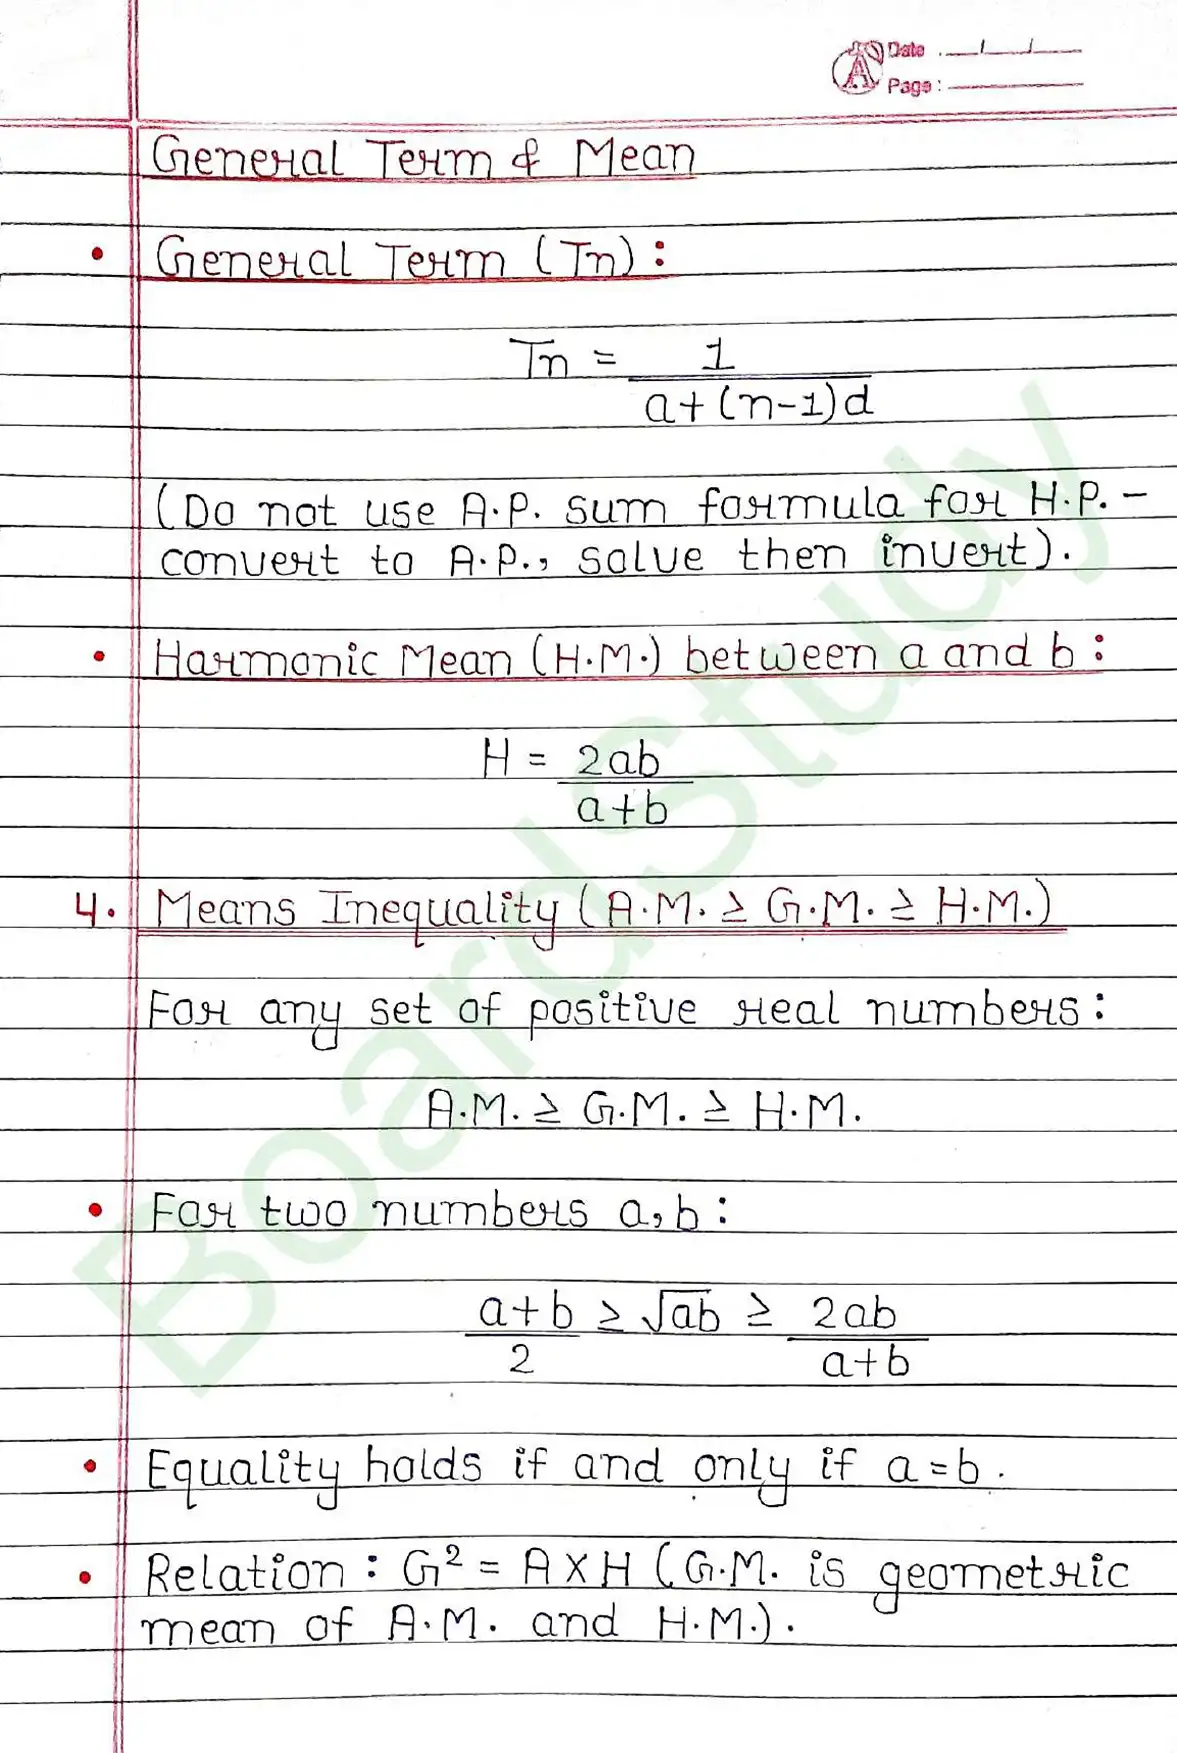 Date . / /
Page :
General Term & Mean
• General Term (Tn) :
Tn = 1
a+(n-1)d
(Do not use A.P. sum formula for H.P. -
convert to A.P., solve then invert).
• Harmonic Mean (H.M.) between a and b :
H = 2ab
a+b
4. Means Inequality (A.M. ≥ G.M. ≥ H.M.)
For any set of positive real numbers :
A.M. ≥ G.M. ≥ H.M.
• For two numbers a, b :
a+b ≥ √ab ≥ 2ab
2 a+b
• Equality holds if and only if a=b.
• Relation : G² = A×H (G.M. is geometric
mean of A.M. and H.M.).
BoardStudy